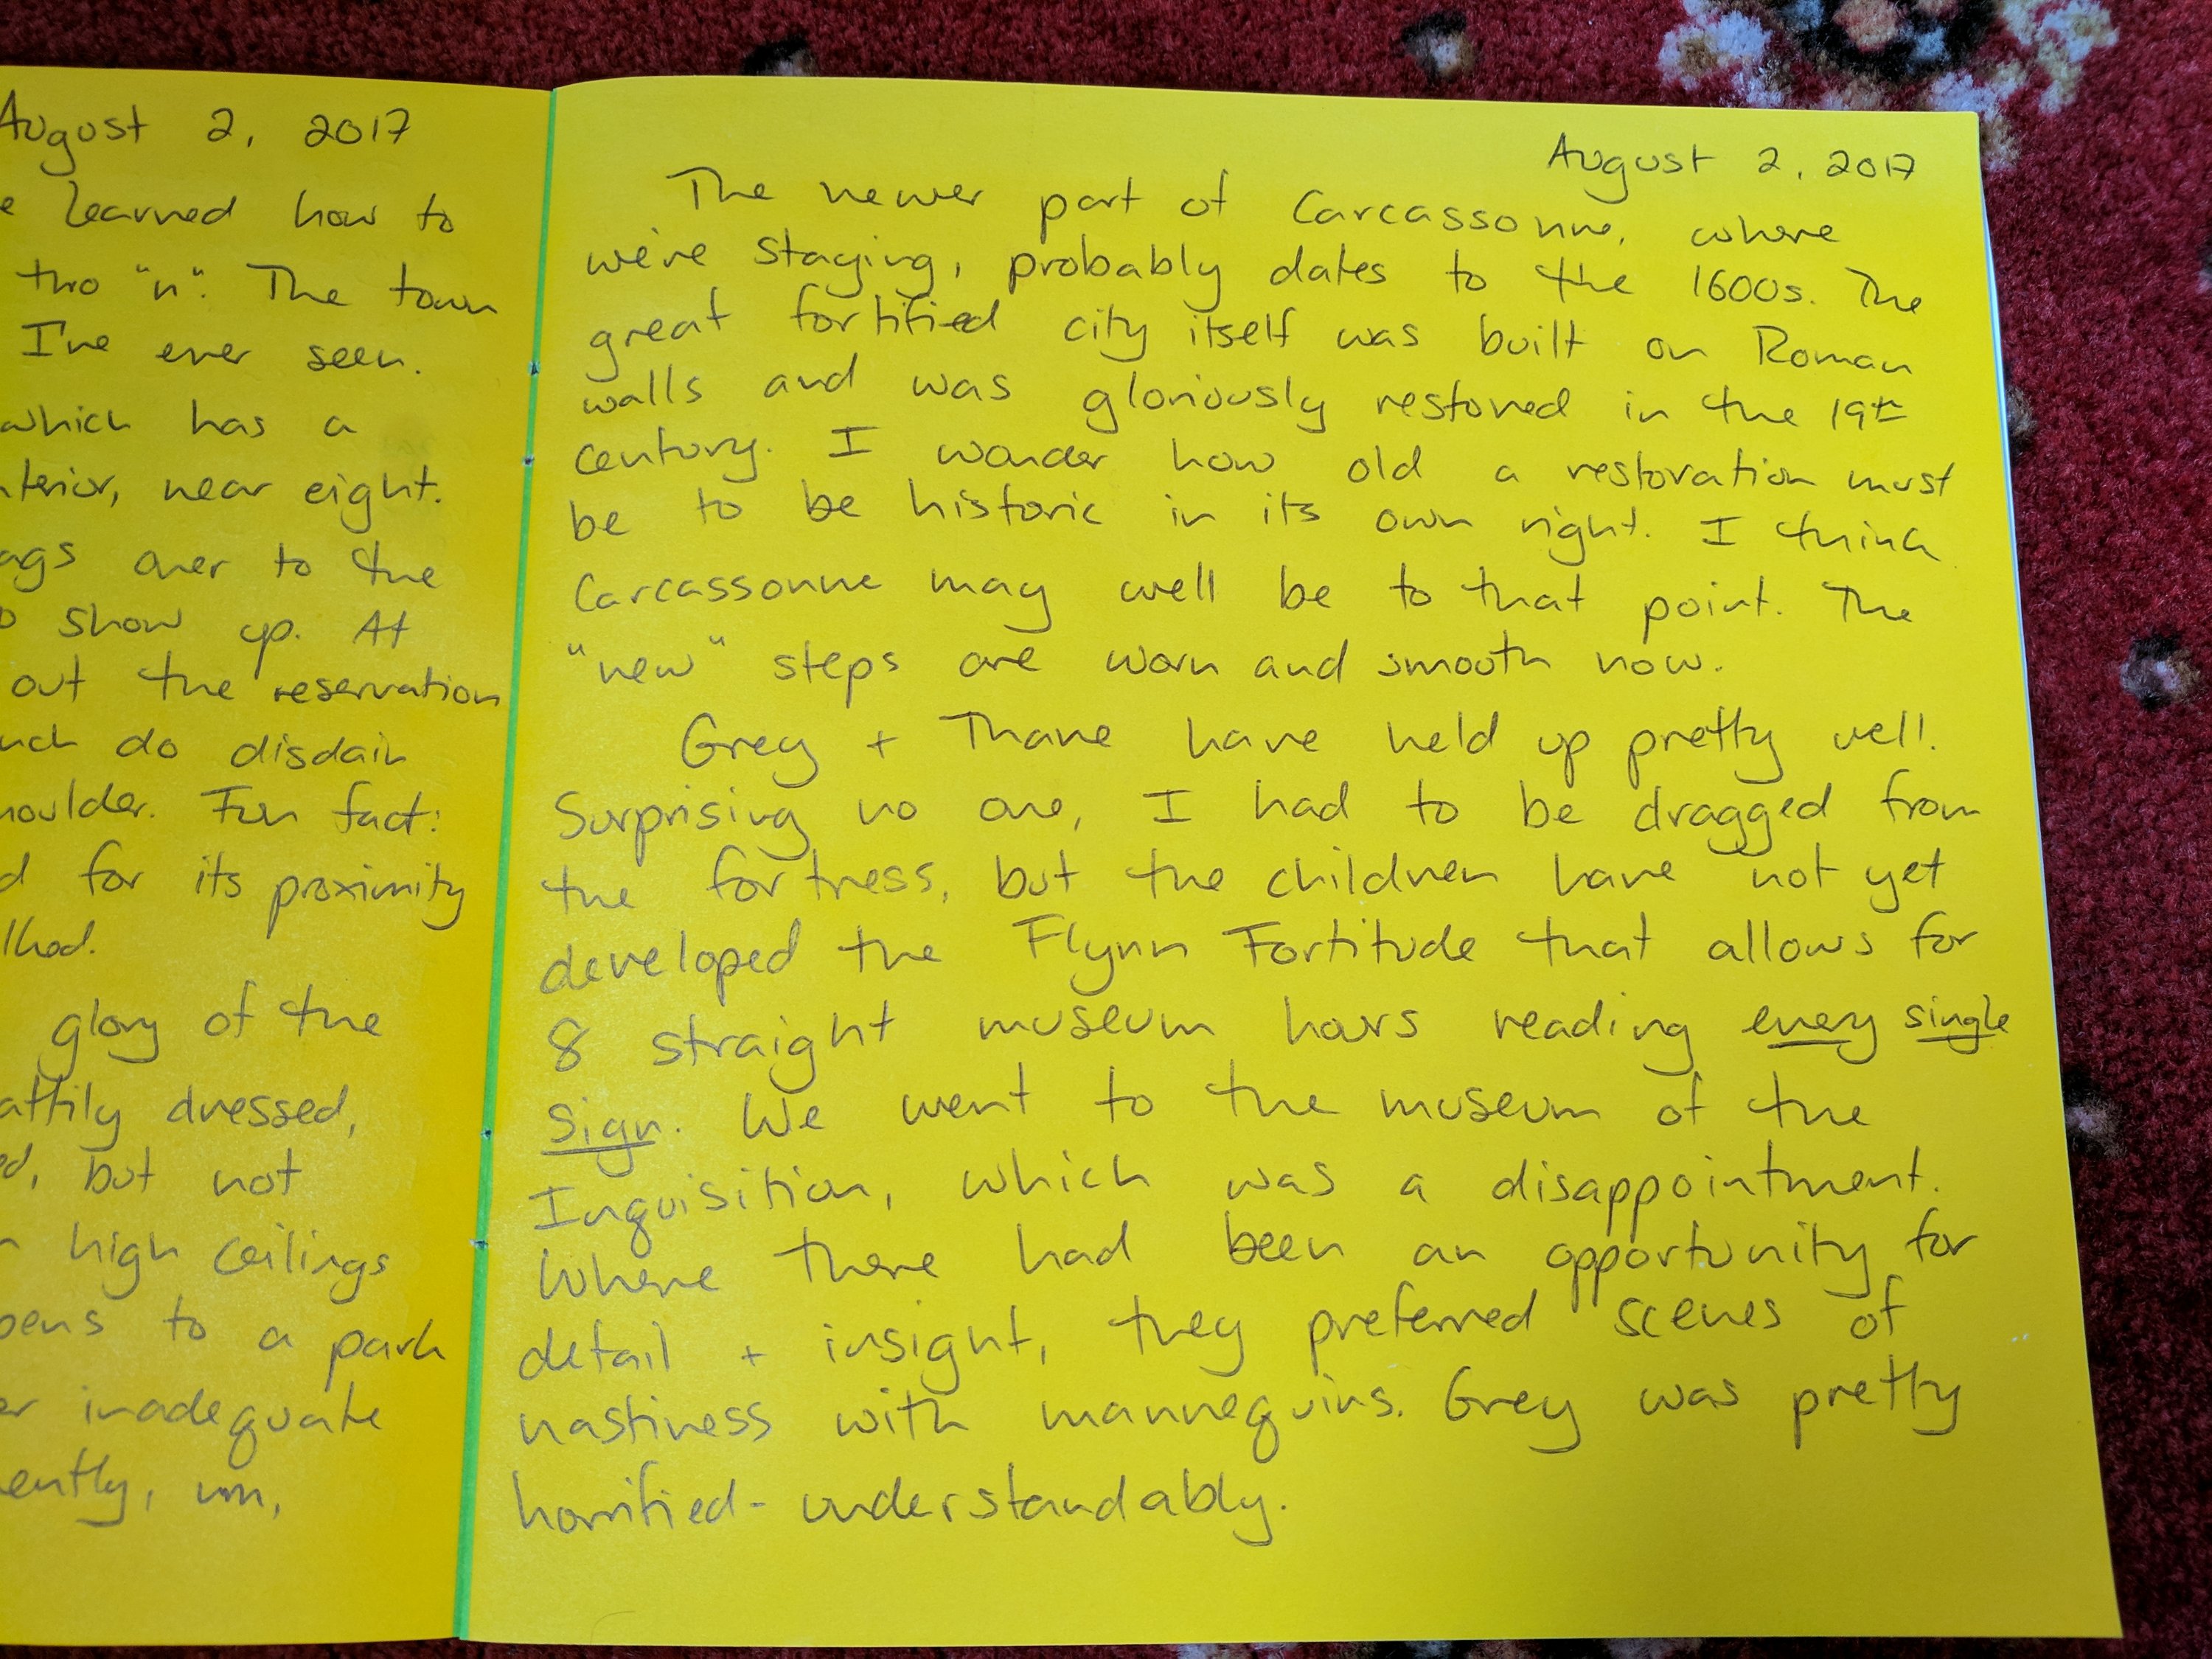 August 2, 2017
learned how to
two "n". The town
I've ever seen.
which has a
near eight.
over to the
show up. At
out the reservation
do disdain
Fun fact:
for its proximity
glory of the
dressed,
but not
high ceilings
to a park
inadequate
um,
August 2, 2017
The newer part of Carcassonne, where
we're staying, probably dates to the 1600s. The
great fortified city itself was built on Roman
walls and was gloriously restored in the 19th
century. I wonder how old a restoration must
be to be historic in its own right. I think
Carcassonne may well be to that point. The
"new" steps are worn and smooth now.
Grey + Thane have held up pretty well.
Surprising no one, I had to be dragged from
the fortress, but the children have not yet
developed the Flynn Fortitude that allows for
8 straight museum hours reading every single
sign. We went to the museum of the
Inquisition, which was a disappointment.
Where there had been an opportunity for
detail + insight, they preferred scenes of
nastiness with mannequins. Grey was pretty
horrified - understandably.